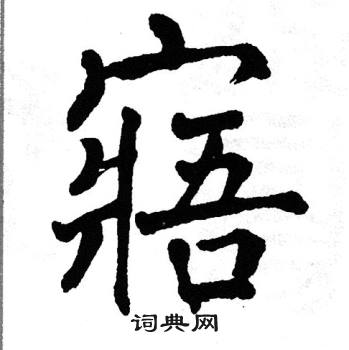 寤
词典网